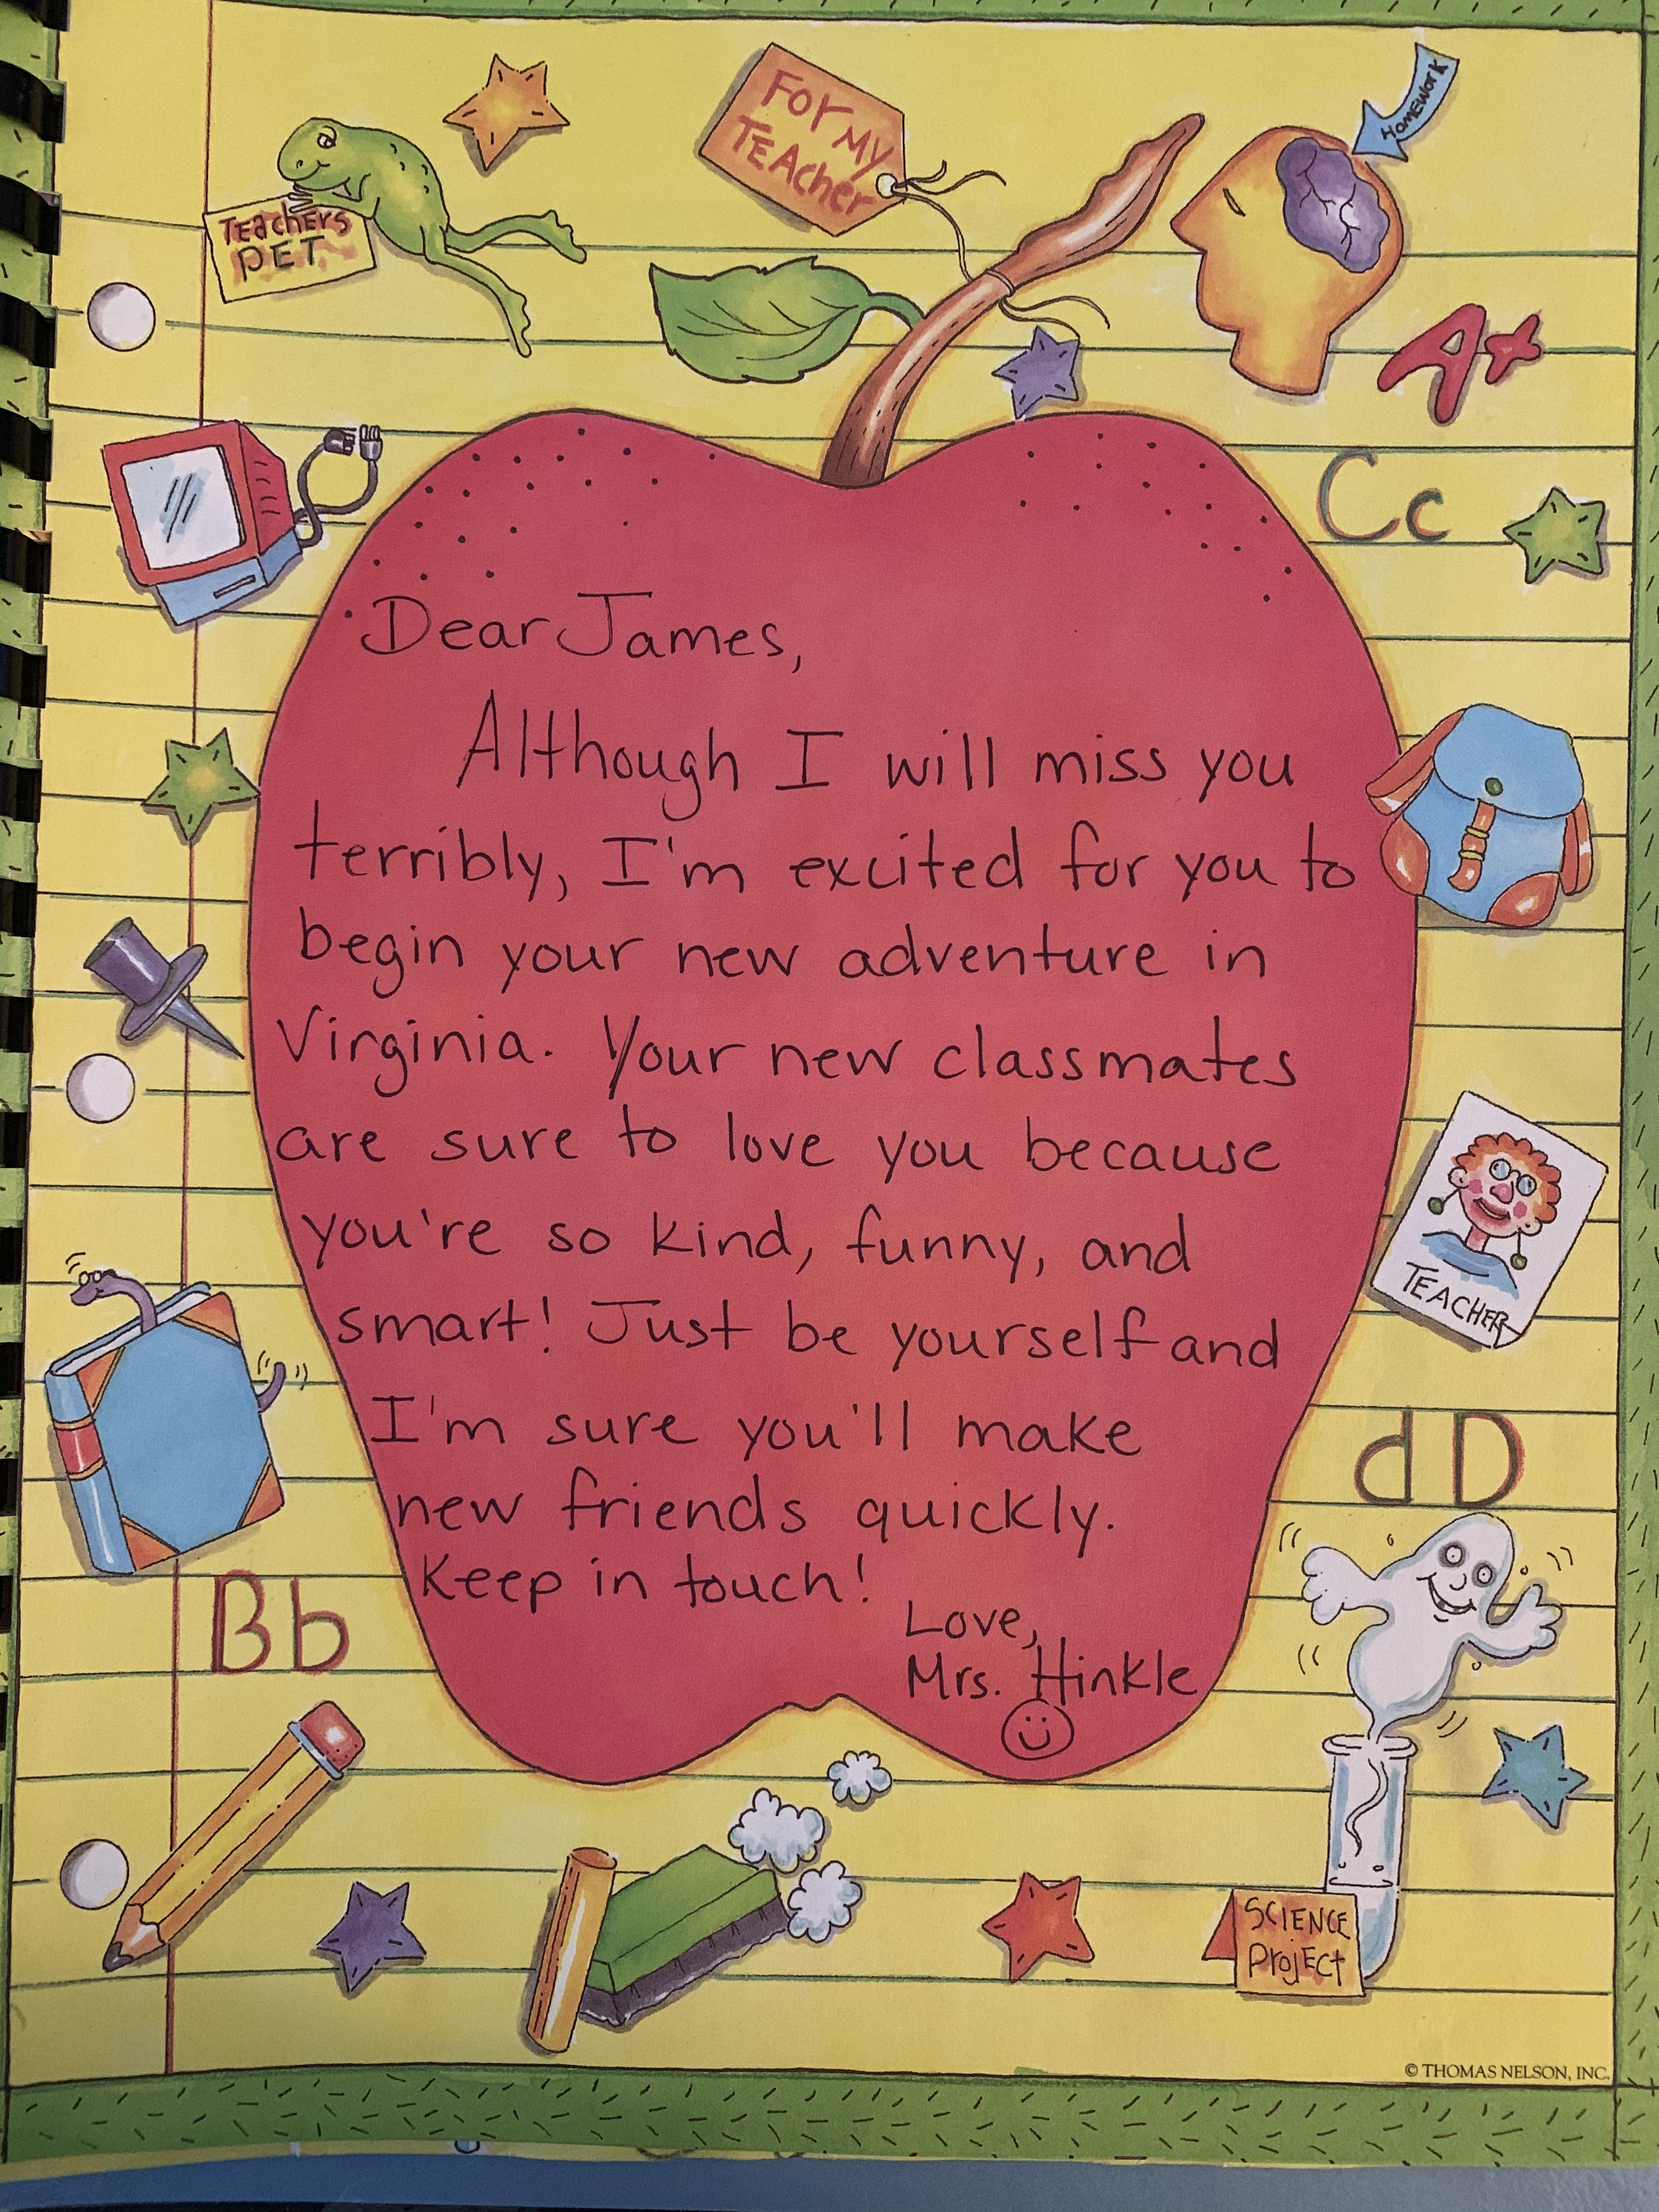 HOMEWORK
FOr MY
TEAcher
TEachers
PET
A+
Cc
Dear James,
Although I will miss you
terribly, I'm excited for you to
begin your new adventure in
Virginia. Your new classmates
are sure to love you because
you're so kind, funny, and
smart! Just be yourself and
I'm sure you'll make
new friends quickly.
Keep in touch!
Love,
Mrs. Hinkle
TEACHER
dD
Bb
SCIENCE
ProjEct
© THOMAS NELSON, INC.